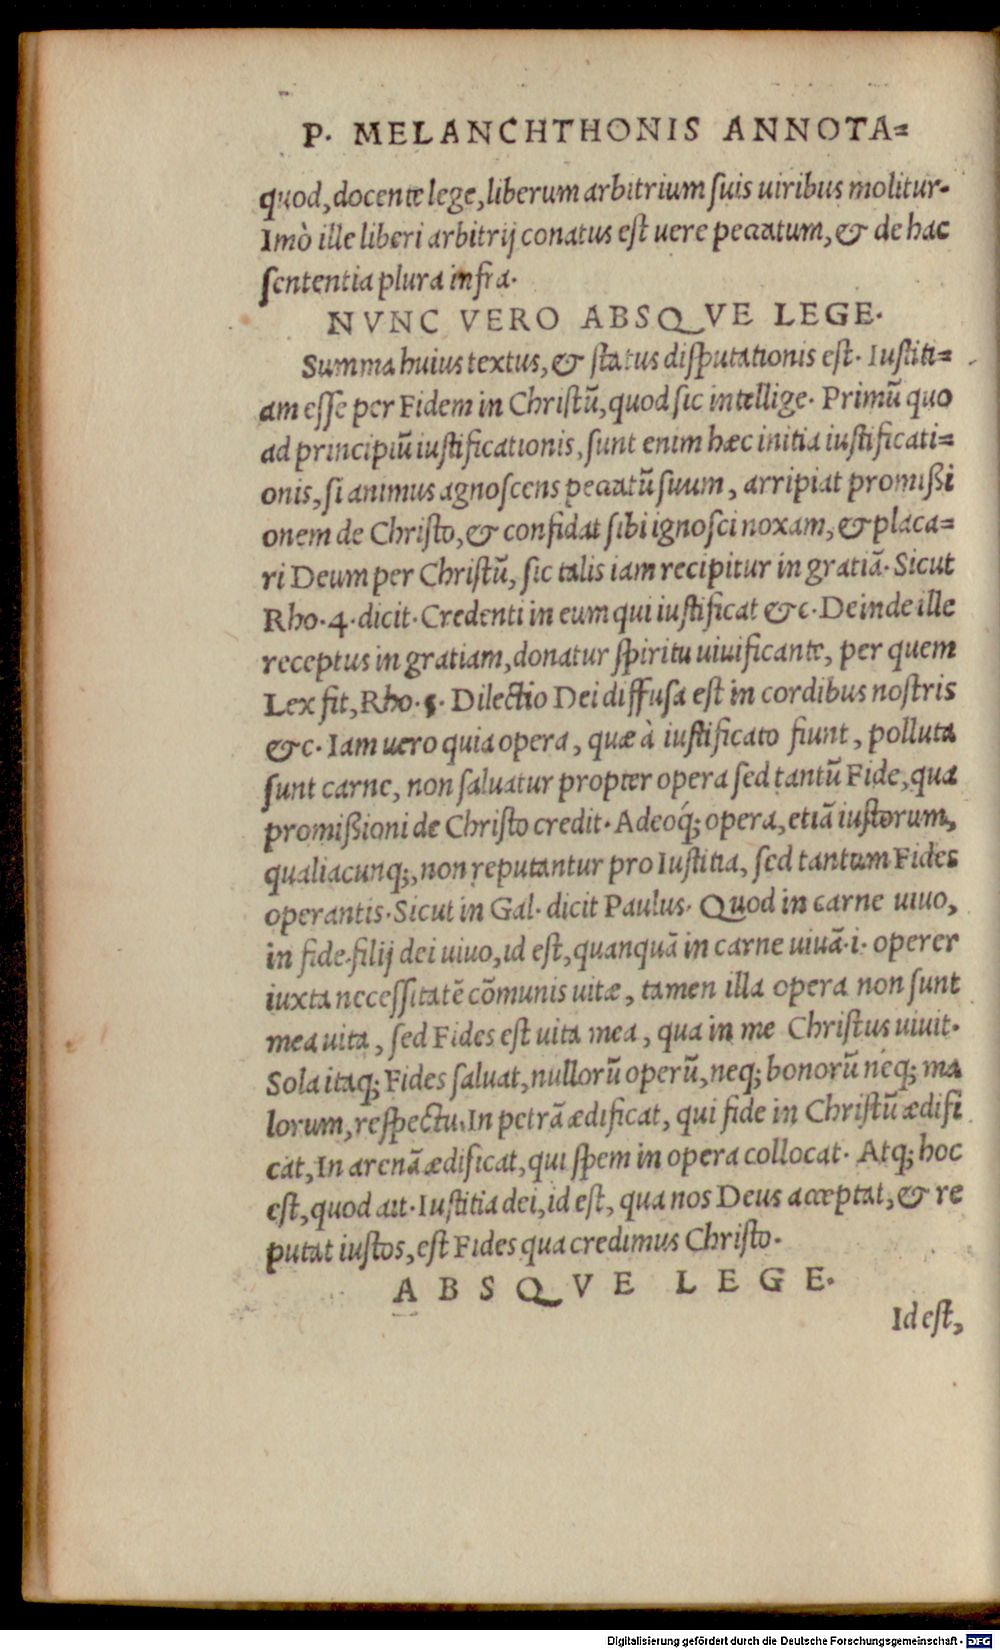 P. MELANCHTHONIS ANNOTA=
quod, docente lege, liberum arbitrium suis uiribus molitur.
Imò ille liberi arbitrij conatus est uere peccatum, & de hac
sententia plura infra.
NVNC VERO ABSQVE LEGE.
Summa huius textus, & status disputationis est. Iustiti=
am esse per Fidem in Christũ, quod sic intellige. Primũ quo
ad principiũ iustificationis, sunt enim hæc initia iustificati=
onis, si animus agnoscens peccatũ suum, arripiat promißi
onem de Christo, & confidat sibi ignosci noxam, & placa=
ri Deum per Christũ, sic talis iam recipitur in gratiã. Sicut
Rho. 4. dicit. Credenti in eum qui iustificat &c. Deinde ille
receptus in gratiam, donatur spiritu uiuificante, per quem
Lex fit, Rho. 5. Dilectio Dei diffusa est in cordibus nostris
&c. Iam uero quia opera, quæ à iustificato fiunt, polluta
sunt carne, non saluatur propter opera sed tantũ Fide, qua
promißioni de Christo credit. Adeoq́; opera, etiã iustorum,
qualiacunq;, non reputantur pro Iustitia, sed tantum Fides
operantis. Sicut in Gal. dicit Paulus. Quod in carne uiuo,
in fide filij dei uiuo, id est, quanquã in carne uiuã .i. operer
iuxta necessitatẽ cõmunis uitæ, tamen illa opera non sunt
mea uita, sed Fides est uita mea, qua in me Christus uiuit.
Sola itaq; Fides saluat, nullorũ operũ, neq; bonorũ neq; ma
lorum, respectu. In petrã ædificat, qui fide in Christũ ædifi
cat, In arenã ædificat, qui spem in opera collocat. Atq; hoc
est, quod ait. Iustitia dei, id est, qua nos Deus acceptat, & re
putat iustos, est Fides qua credimus Christo.
ABSQVE LEGE.
Id est,
Digitalisierung gefördert durch die Deutsche Forschungsgemeinschaft - DFG